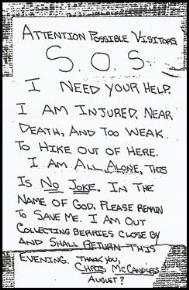 ATTENTION POSSIBLE VISITORS.
S.O.S.
I NEED YOUR HELP.
I AM INJURED, NEAR
DEATH, AND TOO WEAK
TO HIKE OUT OF HERE.
I AM ALL ALONE, THIS
IS NO JOKE. IN THE
NAME OF GOD, PLEASE REMAIN
TO SAVE ME. I AM OUT
COLLECTING BERRIES CLOSE BY
AND SHALL RETURN THIS
EVENING. THANK YOU,
CHRIS McCANDLESS
AUGUST?